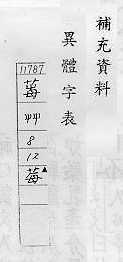 補充資料
異體字表
11787
莓
艸
8
12
苺▲